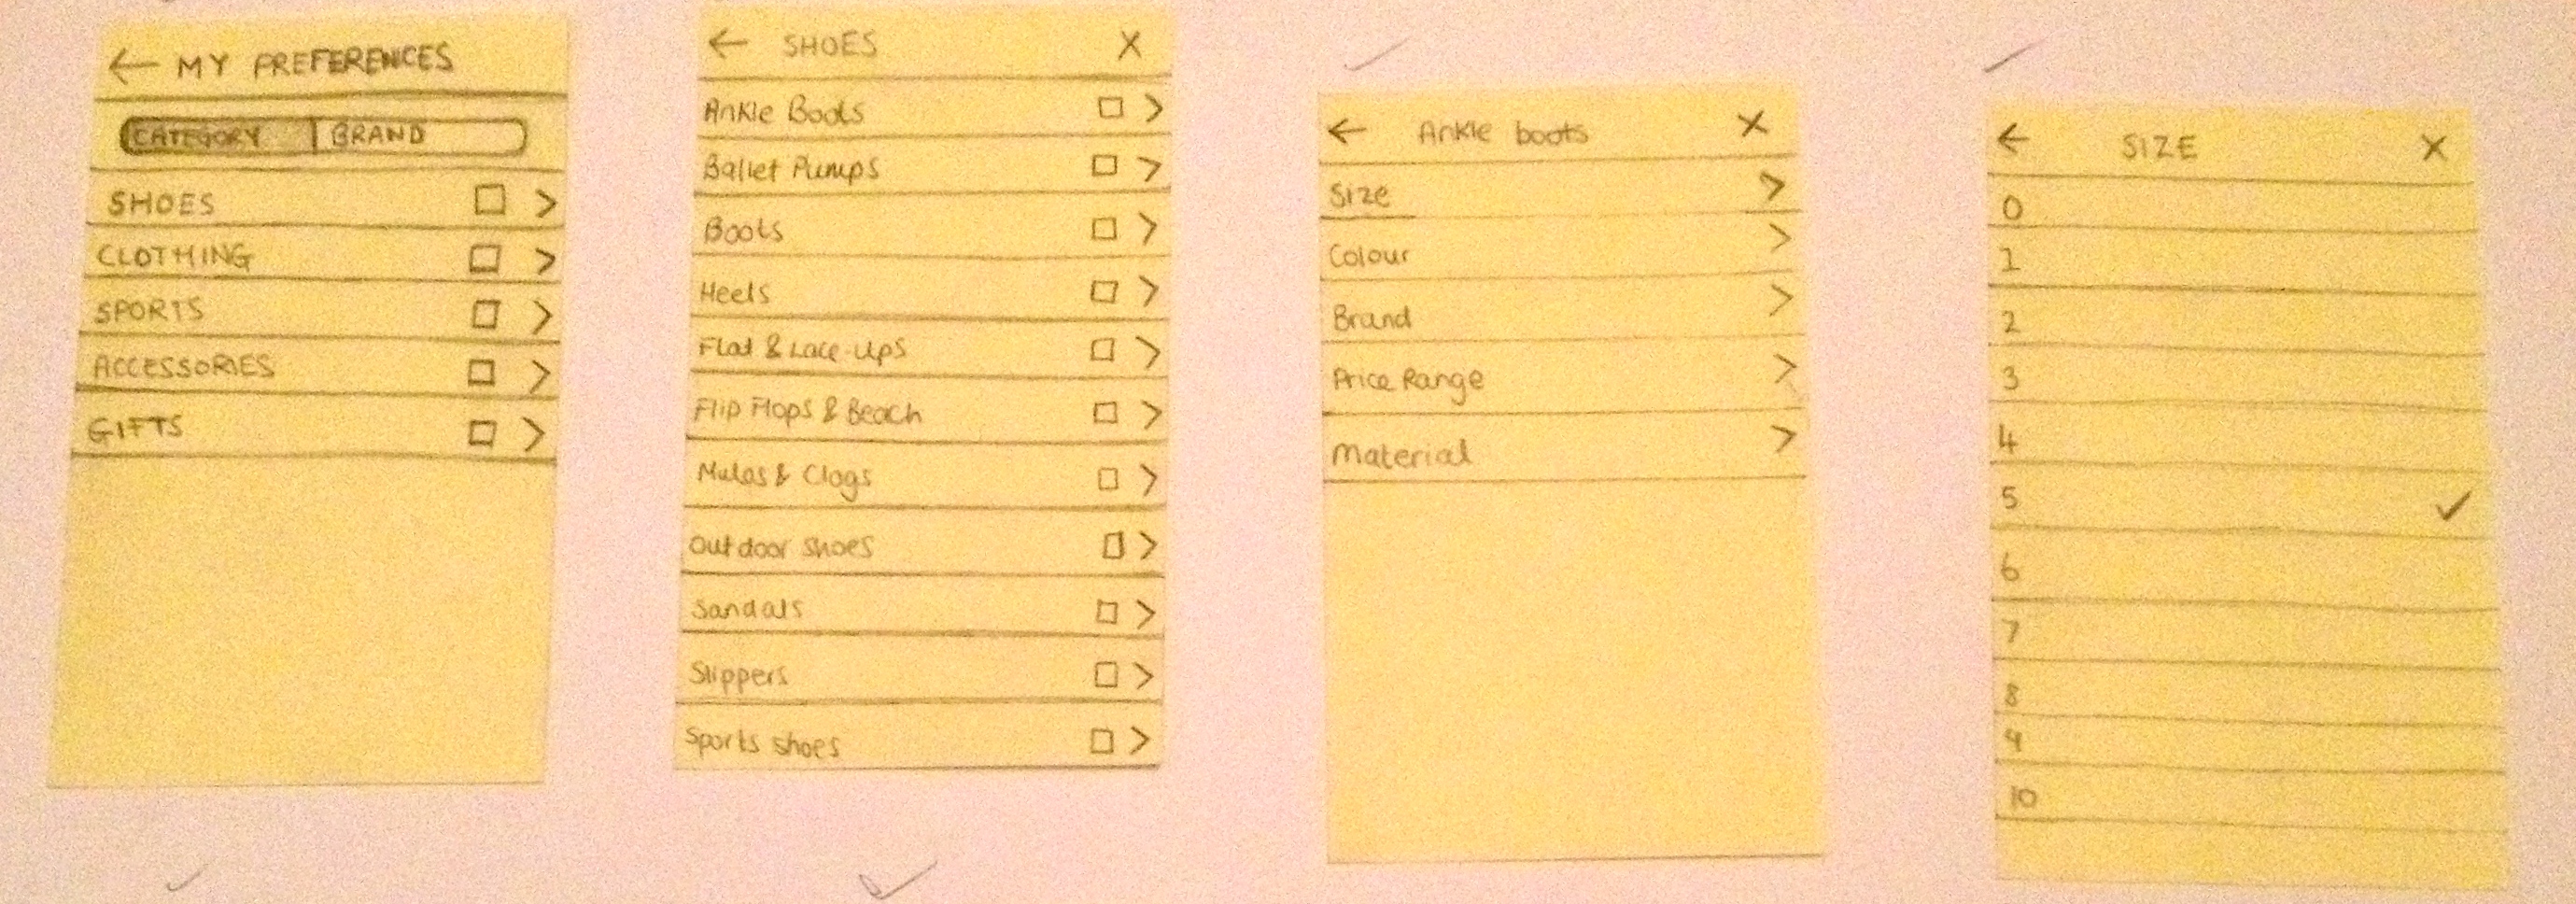 MY PREFERENCES
CATEGORY BRAND
SHOES
CLOTHING
SPORTS
ACCESSORIES
GIFTS
SHOES X
Ankle Boots
Ballet Pumps
Boots
Heels
Flat & Lace-Ups
Flip Flops & Beach
Mules & Clogs
Outdoor shoes
Sandals
Slippers
Sports shoes
Ankle boots X
Size
Colour
Brand
Price Range
Material
SIZE X
0
1
2
3
4
5
6
7
8
9
10